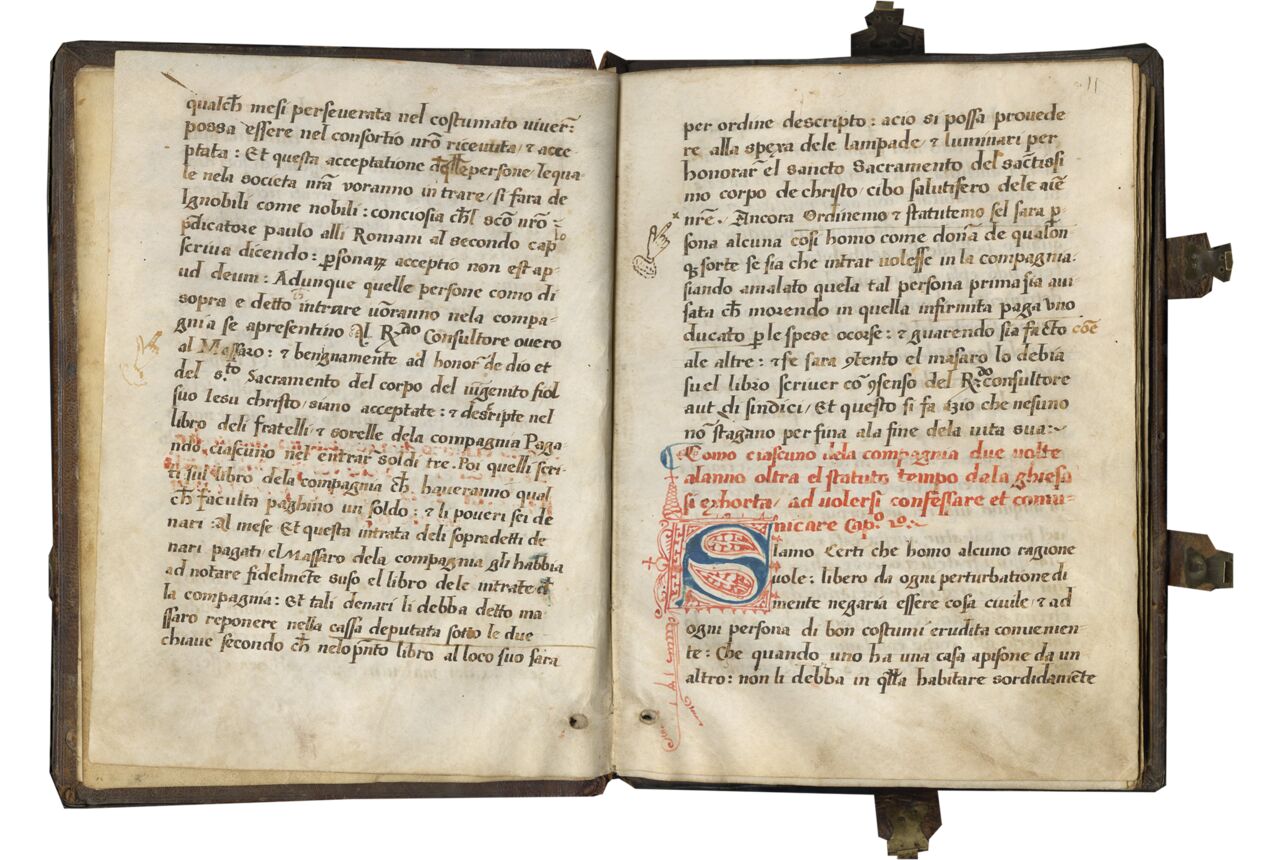 qualch̄ mesi perseverata nel costumato viver:
possa essere nel consortio nr̄o ricevuta / & acce-
ptata : Et questa acceptatione persone / lequa
le nela societa nr̄a voranno intrare / si fara de
Ignobili come nobili : conciosia ch̄l scō nr̄o
p̄dicatore paulo alli Romani al secondo cap̄lo
scriva dicendo : acceptio non est ap-
ud deum : Adunque quelle persone como di
sopra e detto intrare vorranno nela compa-
gnia se apresentino Al R.do Consultore overo
al Massaro : & benignamente ad honor̄ de dio et
del s.to Sacramento del corpo del unigenito fiol
suo Iesu christo / siano acceptate : & descripte nel
libro deli fratelli & sorelle dela compagnia Paga
ndo ciascuno nel entrar̄ soldi tre. Poi quelli scri-
ti sul libro dela compagnia ch̄ haveranno qual
ch̄ faculta paghino un soldo : & li poveri sei de
nari : Al mese Et questa intrata deli sopradetti de
nari pagati el Massaro dela compagnia gli habbia
ad notare fidelmēte suso el libro dele intrate d
la compagnia : Et tali denari li debba detto ma
ssaro reponere nella cassa deputata sotto le due
chiave secondo ch̄ nel libro al loco suo sara
11
per ordine descripto : acio si possa provede
re alla spexa dele lampade / & luminari per
honorar̄ el sancto Sacramento del sāctissi
mo corpo de christo / cibo salutifero dele
nr̄e. Ancora Ordinemo & statutemo sel sara p̄
sona alcuna cosi homo come donā de qualon
sorte se sia che intrar volesse in la compagnia :
siando amalato quela tal persona prima sia avi
sata ch̄ morendo in quella infirmita paga uno
ducato p̄ le spese ocorse : & guarendo sia facto coē
ale altre : & se sara el masaro lo debia
su el libro scriver cō del R.do consultore
aut di sindici / Et questo si fa azio che nesuno
nō stagano per fina ala fine dela vita sua :
Como ciascuno dela compagnia due volte
alanno oltra el statuto tempo dala ghiesa
si exhorta / ad volersi confessare et comu-
nicare Cap.o
Siamo Certi che homo alcuno ragione
vole : libero da ogni perturbatione di
mente negaria essere cosa civile / & ad
ogni persona di bon costumi erudita convenien-
te : Che quando uno ha una casa apisone da un
altro : non li debba in q̄lla habitare sordidamēte